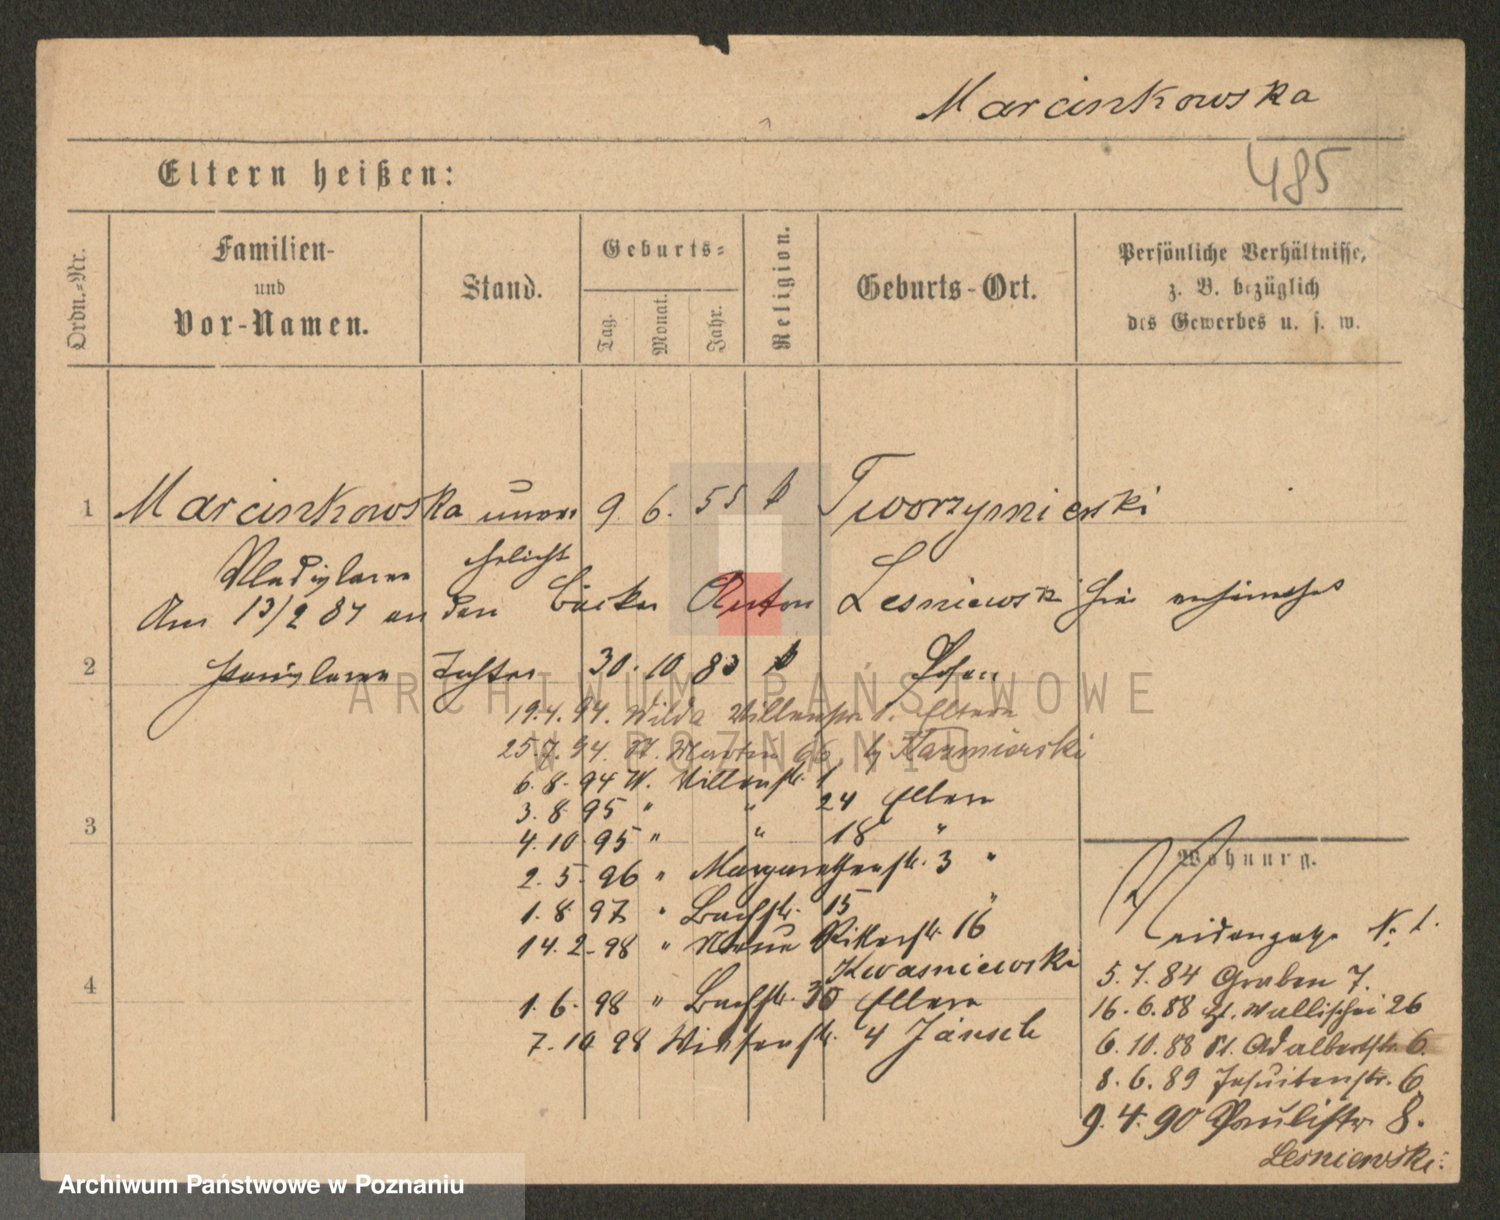 Marcinkowska
485
Eltern heißen:
Ordn.-Nr.
Familien-
und
Vor-Namen.
Stand.
Geburts-
Tag.
Monat.
Jahr.
Religion.
Geburts-Ort.
Persönliche Verhältnisse,
z. B. bezüglich
des Gewerbes u. s. w.
1 Marcinkowska unver 9. 6. 55 Tworzymierski
Wladislawa ehelicht
Am 13/2 87 an den Bäcker Anton Lesniewski hier verheirathet
2 Stanislawa Tochter 30. 10. 83 Posen
19.4.94. Wilda Villenstr. Eltern
25.7.94. St. Martin 66 b. Kazmierski
6.8.94 W. Villenstr. 1
3.8.95 " " 24 Eltern
3
4.10.95 " " 18 "
2.5.96 " Margarethenstr. 3 "
1.8.97 " Bachstr. 15 "
14.2.98 " Neue Ritterstr. 16
Kwasniewski
4
1.6.98 " Bachstr. 30 Eltern
7.10.98 4 Jänsch
Wohnung.
N. 1.
5.7.84 Graben 7.
16.6.88 Wallischei 26
6.10.88 St. Adalbertstr. 6.
8.6.89 Jesuitenstr. 6
9.4.90 Paulistr. 8.
Lesniewski.
ARCHIWUM PAŃSTWOWE
W POZNANIU
Archiwum Państwowe w Poznaniu